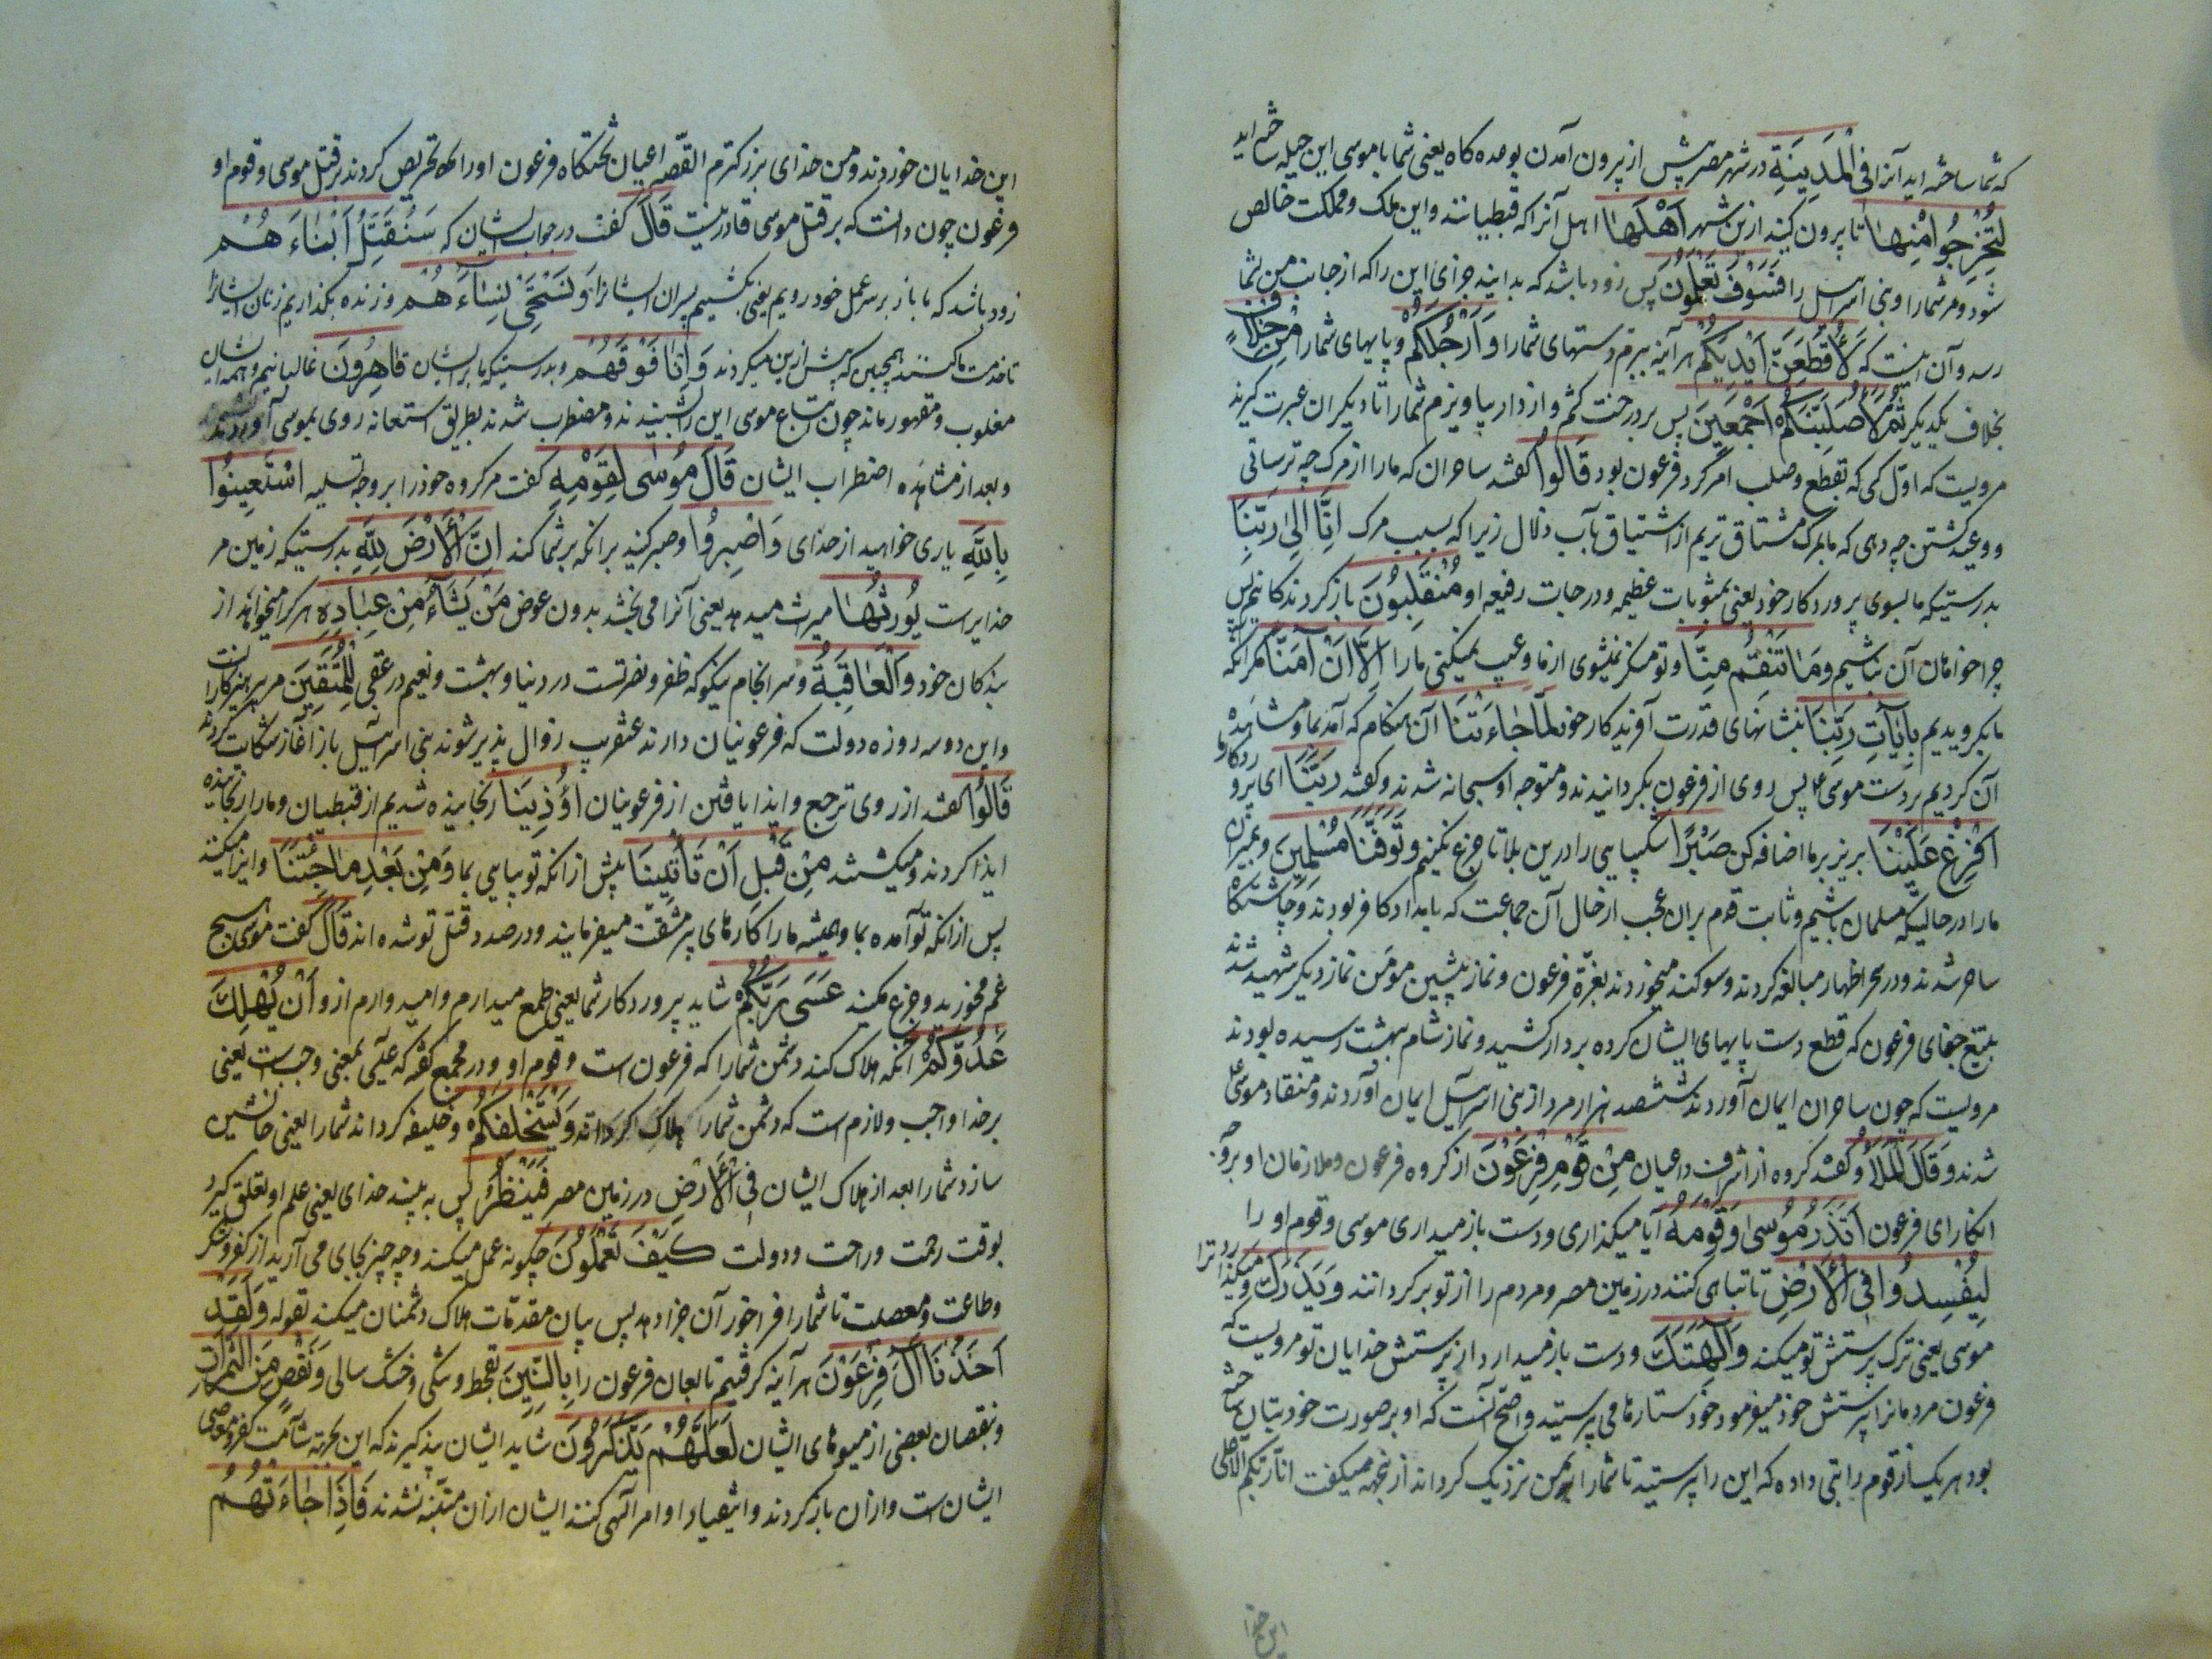 که شما ساخته اید آنرا فِی الْمَدِینَةِ در شهر مصر پیش از بیرون آمدن بوعده کاه یعنی شما با موسی این حیله ساخته اید
لِتُخْرِجُوا مِنْهَا تا بیرون کنید ازین شهر اَهْلَهَا اهل آنرا که قبطیانند و این ملک و مملکت خالص
شود و مر شما را و بنی اسرائیل را فَسَوْفَ تَعْلَمُونَ پس زود باشد که بدانید جزای این را که از جانب من بشما
رسد و آن اینست که لَاُقَطِّعَنَّ اَیْدِیَکُمْ هر آینه ببرم دستهای شما را وَ اَرْجُلَکُمْ و پایهای شما را مِنْ خِلَافٍ
بخلاف یکدیکر ثُمَّ لَاُصَلِّبَنَّکُمْ اَجْمَعِینَ پس بر درخت کشم و از دار بیاویزم شما را تا دیکران عبرت کیرند
مرویست که اوّل کسی که بقطع و صلب امر کرد فرعون بود قَالُوا کفتند ساحران که ما را از مرک چه ترسانی
و وعید کشتن چه دهی که ما بمرک مشتاق تریم از اشتیاق بآب زلال زیرا که بسبب مرک اِنَّا اِلٰی رَبِّنَا
بدرستیکه ما بسوی پروردکار خود یعنی بمثوبات عظیمه و درجات رفیعه او مُنْقَلِبُونَ باز کردندکانیم پس
چرا خواهان آن نباشیم وَمَا تَنْقِمُ مِنَّا و تو منکر نمیشوی از ما و عیب نمیکنی ما را اِلَّا اَنْ اٰمَنَّا مکر آنکه
ما بکرویدیم بِاٰیَاتِ رَبِّنَا بنشانهای قدرت آفریدکار خود لَمَّا جَاءَتْنَا آن هنکام که آمد بما و مشاهده
آن کردیم بر دست موسی ع پس روی از فرعون بکردانیدند و متوجه او سبحانه شدند و کفتند رَبَّنَا ای پروردکار ما
اَفْرِغْ عَلَیْنَا بریز بر ما اضافه کن صَبْرًا شکیبایی را درین بلا تا جزع نکنیم وَ تَوَفَّنَا مُسْلِمِینَ و بمیران
ما را در حالتیکه مسلمان باشیم و ثابت قدم بران عجب از حال آن جماعت که بامداد کافر بودند و چاشتکاه
ساحر شدند و در سحر اظهار مبالغه کردند و سوکند میخوردند بعزّة فرعون و نماز پیشین مؤمن نماز دیکر شهید شدند
بتیغ جفای فرعون که قطع دست پایهای ایشان کرده بر دار کشید و نماز شام ببهشت رسیده بودند
مرویست که چون ساحران ایمان آوردند ششصد هزار مرد از بنی اسرائیل ایمان آوردند و منقاد موسی ع
شدند وَ قَالَ الْمَلَاُ و کفتند کروه از اشراف و اعیان مِنْ قَوْمِ فِرْعَوْنَ از کروه فرعون و ملازمان او بر وجه
انکار ای فرعون اَتَذَرُ مُوسٰی وَ قَوْمَهُ آیا میکذاری و دست باز میداری موسی و قوم او را
لِیُفْسِدُوا فِی الْاَرْضِ تا تباهی کنند در زمین مصر و مردم را از تو برکردانند وَ یَذَرَکَ و میکذارد ترا
موسی یعنی ترک پرستش تو میکند وَ اٰلِهَتَکَ و دست باز میدارد از پرستش خدایان تو مرویست که
فرعون مردمانرا پرستش خود میفرمود و خود ستارها می پرستید و اصح آنست که او بر صورت خود بتان ساخته
بود هر یک از قوم را بتی داده که این را پرستید تا شما را بمن نزدیک کرداند از نجهه میکفت انا ربکم الاعلی
این خدا
این خدایان خوردند و من خدای بزرکترم القصه اعیان تختکاه فرعون او را که تحریص کردند بر قتل موسی و قوم او
فرعون چون دانست که بر قتل موسی قادر نیست قَالَ کفت در جواب ایشان که سَنُقَتِّلُ اَبْنَاءَهُمْ
زود باشد که ما باز بر سر عمل خود رویم یعنی بکشیم پسران ایشانرا وَ نَسْتَحْیِی نِسَاءَهُمْ و زنده بکذاریم زنان ایشانرا
تا خدمت ما کنند همچنین که پیش ازین میکردند وَ اِنَّا فَوْقَهُمْ و بدرستیکه ما بر ایشان قَاهِرُونَ غالبانیم و همه ایشان
مغلوب و مقهور ماند چون تباع موسی این را شنیدند و مضطرب شدند بطریق استعانه روی بموسی آوردند
و بعد از مشاهده اضطراب ایشان قَالَ مُوسٰی لِقَوْمِهِ کفت مر کروه خود را بر وجه تسلیه اسْتَعِینُوا
بِاللّٰهِ یاری خواهید از خدای وَ اصْبِرُوا و صبر کنید برانکه بر شما کنند اِنَّ الْاَرْضَ لِلّٰهِ بدرستیکه زمین مر
خدایراست یُورِثُهَا میراث میدهد یعنی آنرا می بخشد بدون عوض مَنْ یَشَاءُ مِنْ عِبَادِهِ هر کرا میخواهد از
بندکان خود وَ الْعَاقِبَةُ و سرانجام نیکو که ظفر و نصرتست در دنیا و بهشت و نعیم در عقبی لِلْمُتَّقِینَ مر پرهیزکارانست
و این دو سه روزه دولت که فرعونیان دارند عنقریب زوال پذیر شوند بنی اسرائیل باز آغاز شکایت کردند
قَالُوا کفتند از روی ترجع و ایذا یافتن از فرعونیان اُوذِینَا رنجانیده شدیم از قبطیان و ما را رنجانیده
ایذا کردند و میکشتند مِنْ قَبْلِ اَنْ تَأْتِیَنَا پیش از انکه تو بیایی بما وَ مِنْ بَعْدِ مَا جِئْتَنَا و ایذا میکنند
پس از انکه تو آمده بما و همیشه ما را کارهای پر مشقت میفرمایند و در صدد قتل تو شده اند قَالَ کفت موسی هیچ
غم مخورید و جزع مکنید عَسٰی رَبُّکُمْ شاید پروردکار شما یعنی طمع میدارم و امیدوارم ازو اَنْ یُهْلِکَ
عَدُوَّکُمْ آنکه هلاک کند دشمن شما را که فرعون است و قوم او و در مجمع کفته که عسی بمعنی وجبست یعنی
بر خدا واجب و لازم است که دشمن شما را هلاک کرداند وَ یَسْتَخْلِفَکُمْ و خلیفه کرداند شما را یعنی جانشین
سازد شما را بعد از هلاک ایشان فِی الْاَرْضِ در زمین مصر فَیَنْظُرَ پس به بیند خدای یعنی علم او تعلق کیرد
بوقت رحمت و راحت و دولت کَیْفَ تَعْمَلُونَ چکونه عمل میکنید و چه چیز بجای می آرید از کفر و شکر
و طاعت و معصیت تا شما را فراخور آن جزا دهد پس بیان مقدمات هلاک دشمنان میکند بقوله وَ لَقَدْ
اَخَذْنَا اٰلَ فِرْعَوْنَ هر آینه کرفتیم تابعان فرعون را بِالسِّنِینَ بقحط و تنکی و خشک سالی وَ نَقْصٍ مِنَ الثَّمَرَاتِ
و نقصان بعضی از میوهای ایشان لَعَلَّهُمْ یَذَّکَّرُونَ شاید ایشان پند کیرند که این بجهة شآمت کفر و معاصی
ایشان است و ازان باز کردند و انقیاد اوامر الهی کنند ایشان ازان متنبه نشدند فَاِذَا جَاءَتْهُمُ